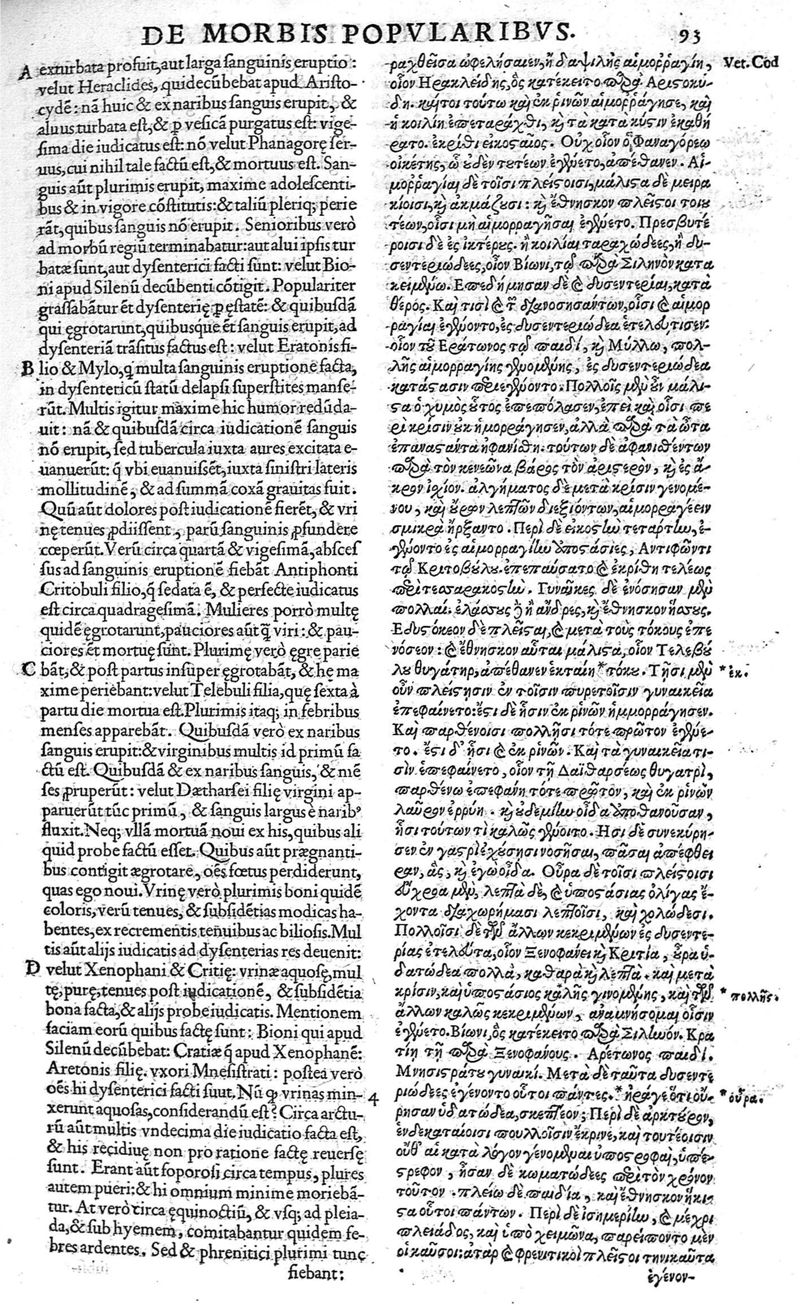 DE MORBIS POPVLARIBVS. 93
A exturbata profuit, aut larga sanguinis eruptio:
velut Heraclides, qui decũbebat apud Aristo-
cydẽ: nã huic & ex naribus sanguis erupit, &
aluus turbata est, & ꝑ vesicã purgatus est: vige-
sima die iudicatus est: nõ velut Phanagorę ser-
uus, cui nihil tale factũ est, & mortuus est. San-
guis aũt plurimis erupit, maxime adolescenti-
bus & in vigore cõstitutis: & taliũ pleriq; perie
rãt, quibus sanguis nõ erupit. Senioribus verò
ad morbũ regiũ terminabatur: aut alui ipsis tur
batæ sunt, aut dysenterici facti sunt: velut Bio-
ni apud Silenũ decũbenti cõtigit. Populariter
grassabãtur ẽt dysenterię ꝑ ęstatẽ: & quibusdã
qui ęgrotarunt, quibusque ẽt sanguis erupit, ad
dysenteriã trãsitus factus est: velut Eratonis fi-
B lio & Mylo, q̃ multa sanguinis eruptione facta,
in dysentericũ statũ delapsi superstites manse-
rũt. Multis igitur maxime hic humor redũda-
uit: nã & quibusdã circa iudicationẽ sanguis
nõ erupit, sed tubercula iuxta aures excitata e-
uanuerũt: q̃ vbi euanuissẽt, iuxta sinistri lateris
mollitudinẽ, & ad summã coxã grauitas fuit.
Qũũ aũt dolores post iudicationẽ fierẽt, & vri
nę tenues ꝓdiissent, parũ sanguinis ꝓfundere
cœperũt. Verũ circa quartã & vigesimã, absces
sus ad sanguinis eruptionẽ fiebãt Antiphonti
Critobuli filio, q̃ sedata ẽ, & perfecte iudicatus
est circa quadragesimã. Mulieres porrò multę
quidẽ ęgrotarunt, pauciores aũt q̃ viri: & pau-
ciores ẽt mortuę sunt. Plurimę verò ęgre parie
C bãt, & post partus insuper ęgrotabãt, & hę ma
xime periebãt: velut Telebuli filia, quę sexta à
partu die mortua est. Plurimis itaq; in febribus
menses apparebãt. Quibusdã verò ex naribus
sanguis erupit: & virginibus multis id primũ fa
ctũ est. Quibusdã & ex naribus sanguis, & mẽ
ses ꝓruperũt: velut Dætharsei filię virgini ap-
paruerũt tũc primũ, & sanguis largus è narib⁹
fluxit. Neq; vllã mortuã noui ex his, quibus ali
quid probe factũ esset. Quibus aũt prægnanti-
bus contigit ægrotare, oẽs fœtus perdiderunt,
quas ego noui. Vrinę verò plurimis boni quidẽ
coloris, verũ tenues, & subsidẽtias modicas ha-
bentes, ex recrementis tenuibus ac biliosis. Mul
tis aũt alijs iudicatis ad dysenterias res deuenit:
D velut Xenophani & Critię: vrinæ aquosę, mul
tę, purę, tenues post iudicationẽ, & subsidẽtia
bona facta, & alijs probe iudicatis. Mentionem
faciam eorũ quibus factę sunt: Bioni qui apud
Silenũ decũbebat: Cratiæ q̃ apud Xenophanẽ:
Aretonis filię. vxori Mnesistrati: postea verò
oẽs hi dysenterici facti suut. Nũ ꝙ vrinas min-
xerunt aquosas, considerandũ est? Circa arctu- 4
rũ aũt multis vndecima die iudicatio facta est,
& his recidiuę non pro ratione factę reuersę
sunt. Erant aũt soporosi circa tempus, plures
autem pueri: & hi omnium minime moriebã-
tur. At verò circa ęquinoctiũ, & vsq; ad pleia-
da, & sub hyemem, comitabantur quidem fe-
bres ardentes. Sed & phrenitici plurimi tunc
fiebant:
ραχθεῖσα ὠφελήσαιεν, ἢ δαψιλὴς αἱμορραγίη, Vet. Cod
οἷον Ηρακλείδῃ, ὃς κατέκειτο παρὰ Αριστοκύ-
δῃ. καίτοι τούτῳ καὶ ἐκ ῥινῶν αἱμορράγησε, καὶ
ἡ κοιλίη ἐπεταράχθη, κỳ τὰ κατὰ κύστιν ἐκαθή
ρατο. ἐκρίθη εἰκοσταῖος. Οὐχ οἷον ὁ Φαναγόρεω
οἰκέτης, ᾧ οὐδὲν τουτέων ἐγένετο, ἀπέθανεν. Αἱ-
μορραγίαι δὲ τοῖσι πλείστοισι, μάλιστα δὲ μειρα
κίοισι, καὶ ἀκμάζουσι: καὶ ἔθνησκον πλεῖστοι του
τέων, οἷσι μὴ αἱμορραγῆσαι ἐγένετο. Πρεσβυτέ
ροισι δὲ ἐς ἰκτέρους. ἢ κοιλίαι ταραχώδεες, ἢ δυ-
σεντεριώδεες, οἷον Βίωνι, τῷ παρὰ Σιληνὸν κατα
κειμένῳ. Επεδήμησαν δὲ καὶ δυσεντερίαι, κατὰ
θέρος. Καί τισι καὶ τῶν διανοσησάντων, οἷσι καὶ αἱμορ
ραγίαι ἐγένοντο, ἐς δυσεντεριώδεα ἐτελεύτισεν:
οἷον τοῦ Εράτωνος τῷ παιδί, καὶ Μύλλῳ, πολ-
λῆς αἱμορραγίης γενομένης, ἐς δυσεντεριώδεα
κατάστασιν περιεγένοντο. Πολλοῖς μὲν οὖν μάλι-
στα ὁ χυμὸς οὗτος ἐπεπόλασεν, ἐπεὶ καὶ οἷσι πε
ρὶ κρίσιν οὐκ ἡμορράγησεν, ἀλλὰ παρὰ τὰ ὦτα
ἐπαναστάντα ἠφανίσθη. τούτων δὲ ἀφανισθέντων
παρὰ τὸν κενεῶνα βάρος τὸν ἀριστερόν, καὶ ἐς ἄ-
κρον ἰσχίον. ἀλγήματος δὲ μετὰ κρίσιν γενομέ-
νου, καὶ οὔρων λεπτῶν διεξιόντων, αἱμορραγέειν
σμικρὰ ἤρξαντο. Περὶ δὲ εἰκοστὴν τετάρτην, ἐ-
γένοντο ἐς αἱμορραγίην ἀποστάσιες, Αντιφῶντι
τῷ Κριτοβούλου. ἐπεπαύσατο καὶ ἐκρίθη τελέως
περὶ τεσσαρακοστήν. Γυναῖκες δὲ ἐνόσησαν μὲν
πολλαί. ἐλάσσους δὲ ἢ ἄνδρες, καὶ ἔθνησκον ἥσσους.
Εδυστόκεον δὲ πλεῖσται, καὶ μετὰ τοὺς τόκους ἐπε
νόσεον: καὶ ἔθνησκον αὗται μάλιστα, οἷον Τελεβού
λου θυγάτηρ, ἀπέθανεν ἑκταίη * τόκου. Τῇσι μὲν * ἐκ.
οὖν πλείστησιν ἐν τοῖσιν πυρετοῖσιν γυναικεῖα
ἐπεφαίνετο: ἔστι δὲ ᾗσιν ἐκ ῥινῶν ἡμορράγησεν.
Καὶ παρθένοισι πολλῇσι τότε πρῶτον ἐγένε-
το. ἔστι δ' ᾗσι καὶ ἐκ ῥινῶν. Καὶ τὰ γυναικεῖά τι-
σιν ἐπεφαίνετο, οἷον τῇ Δαϊθάρσεως θυγατρί,
παρθένῳ ἐπεφάνη τότε πρῶτον, καὶ ἐκ ῥινῶν
λαῦρον ἐρρύη. καὶ οὐδεμίην οἶδα ἀποθανοῦσαν,
ᾗσι τούτων τὶ καλῶς γένοιτο. Ηισι δὲ συνεκύρη-
σεν ἐν γαστρὶ ἐχούσησι νοσῆσαι, πᾶσαι ἀπέφθει
ραν, ἃς καὶ ἐγὼ οἶδα. Οὖρα δὲ τοῖσι πλείστοισι
εὔχροα μὲν, λεπτὰ δὲ, καὶ ὑποστάσιας ὀλίγας ἔ-
χοντα διαχωρήμασι λεπτοῖσι, καὶ χολώδεσι.
Πολλοῖσι δὲ τῶν ἄλλων κεκριμένων ἐς δυσεντε-
ρίας ἐτελεύτα, οἷον Ξενοφάνει καὶ Κριτίᾳ, οὖρα ὑ-
δατώδεα πολλὰ, καθαρὰ καὶ λεπτὰ. καὶ μετὰ
κρίσιν, καὶ ὑποστάσιος καλῆς γινομένης, καὶ τῶν * πολλῆς.
ἄλλων καλῶς κεκριμένων, ἀναμνήσομαι οἷσιν
ἐγένετο. Βίωνι, ὃς κατέκειτο παρὰ Σιληνόν. Κρα
τίῃ τῇ παρὰ Ξενοφάνους. Αρέτωνος παιδί.
Μνησιστράτου γυναικί. Μετὰ δὲ ταῦτα δυσεντε
ριώδεες ἐγένοντο οὗτοι πάντες. * ἦρά γε ὅτι οὔ- * οὖρα.
ρησαν ὑδατώδεα, σκεπτέον; Περὶ δὲ ἀρκτοῦρον,
ἑνδεκαταίοισι πουλλοῖσιν ἔκρινε, καὶ τουτέοισιν
οὐδ' αἱ κατὰ λόγον γενόμεναι ὑποστροφαὶ, ὑπέ-
στρεφον, ἦσαν δὲ κωματώδεες περὶ τὸν χρόνον
τοῦτον. πλείω δὲ παιδία, καὶ ἔθνησκον ἥκι-
στα οὗτοι πάντων. Περὶ δὲ ἰσημερίην, καὶ μέχρι
πλειάδος, καὶ ὑπὸ χειμῶνα, παρείποντο μὲν
οἱ καῦσοι: ἀτὰρ καὶ φρενιτικοὶ πλεῖστοι τηνικαῦτα
ἐγένον-